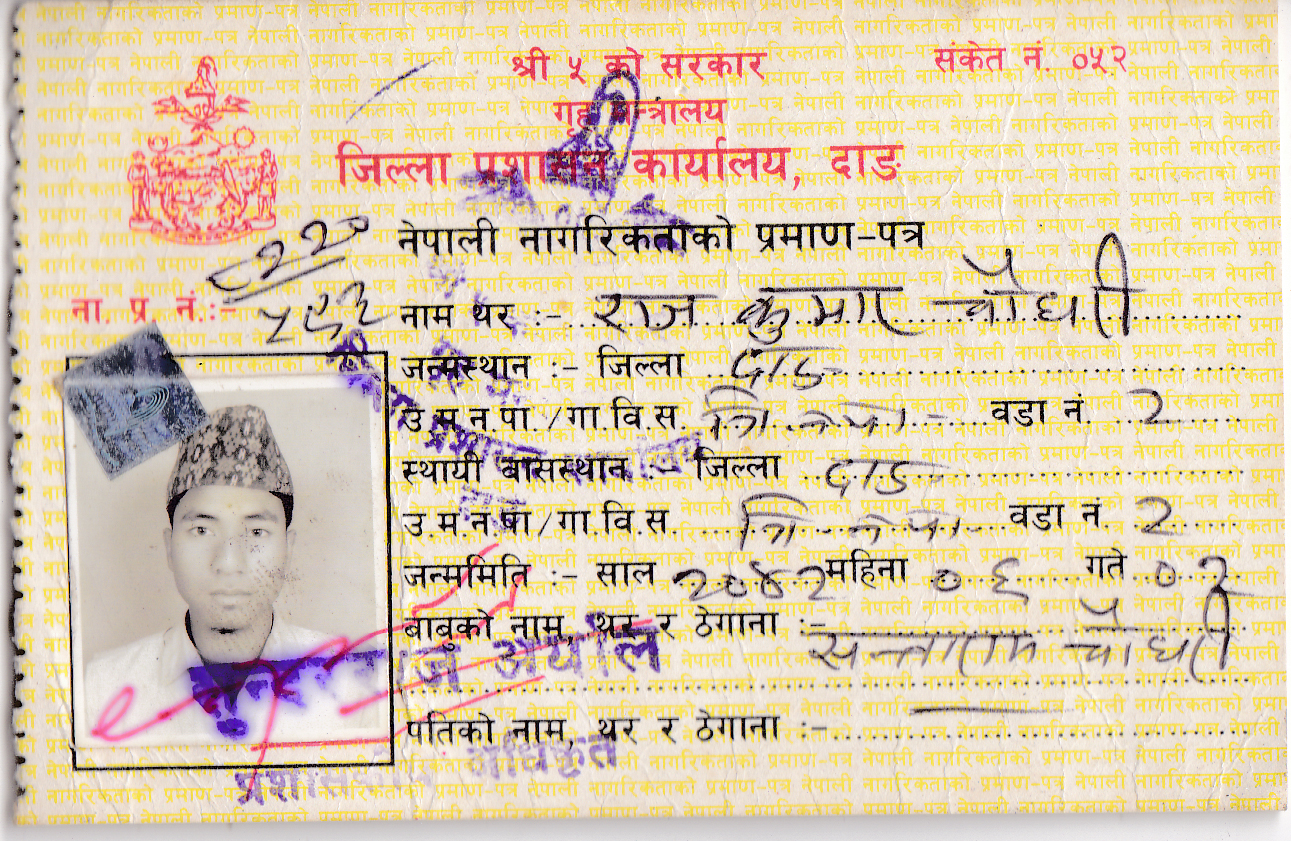 श्री ५ को सरकार
संकेत नं. ०५२
गृह मन्त्रालय
जिल्ला प्रशासन कार्यालय, दाङ
नेपाली नागरिकताको प्रमाण-पत्र
ना. प्र. नं.:-
नाम थर :- राज कुमार चौधरी
जन्मस्थान :- जिल्ला दाङ
उ.म.न.पा./गा.वि.स. त्रि.न.पा. वडा नं. 2
स्थायी बासस्थान :- जिल्ला दाङ
उ.म.न.पा/गा.वि.स. त्रि.न.पा. वडा नं. 2
जन्ममिति :- साल २०४२ महिना ०६ गते ०२
बाबुको नाम, थर र ठेगाना :- सन्तराम चौधरी
पतिको नाम, थर र ठेगाना :-
अधिकृत